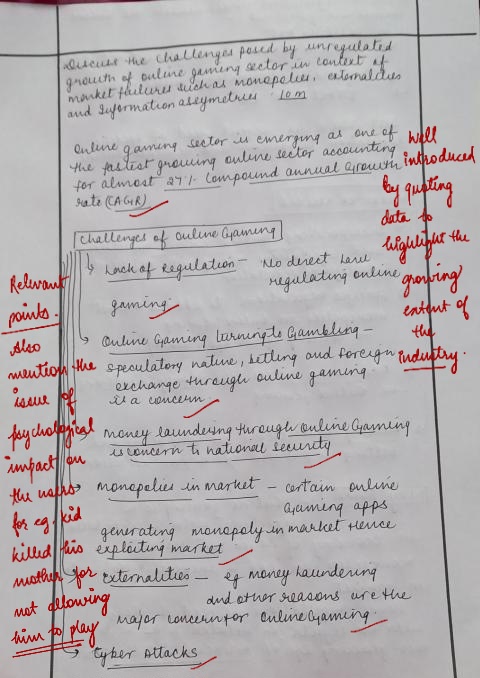 Discuss the challenges posed by unregulated
growth of online gaming sector in context of
market failures such as monopolies, externalities
and Information asymetries. 10m
Online gaming sector is emerging as one of
the fastest growing online sector accounting
for almost 27% compound annual Growth
rate (CAGR)
Well
introduced
by quoting
data to
highlight the
growing
extent of
the
industry.
Challenges of Online Gaming
Lack of Regulation - No direct law
regulating online
gaming.
Online Gaming turning to Gambling -
speculatory nature, betting and foreign
exchange through online gaming
is a concern
money laundering through Online Gaming
is concern to national security
monopolies in market - certain online
Gaming apps
generating monopoly in market hence
exploiting market
Externalities - eg money laundering
and other reasons are the
major concern for Online Gaming.
Cyber Attacks
Relevant
points.
Also
mention the
issue of
psychological
impact on
the users
for eg. kid
killed his
mother for
not allowing
him to play